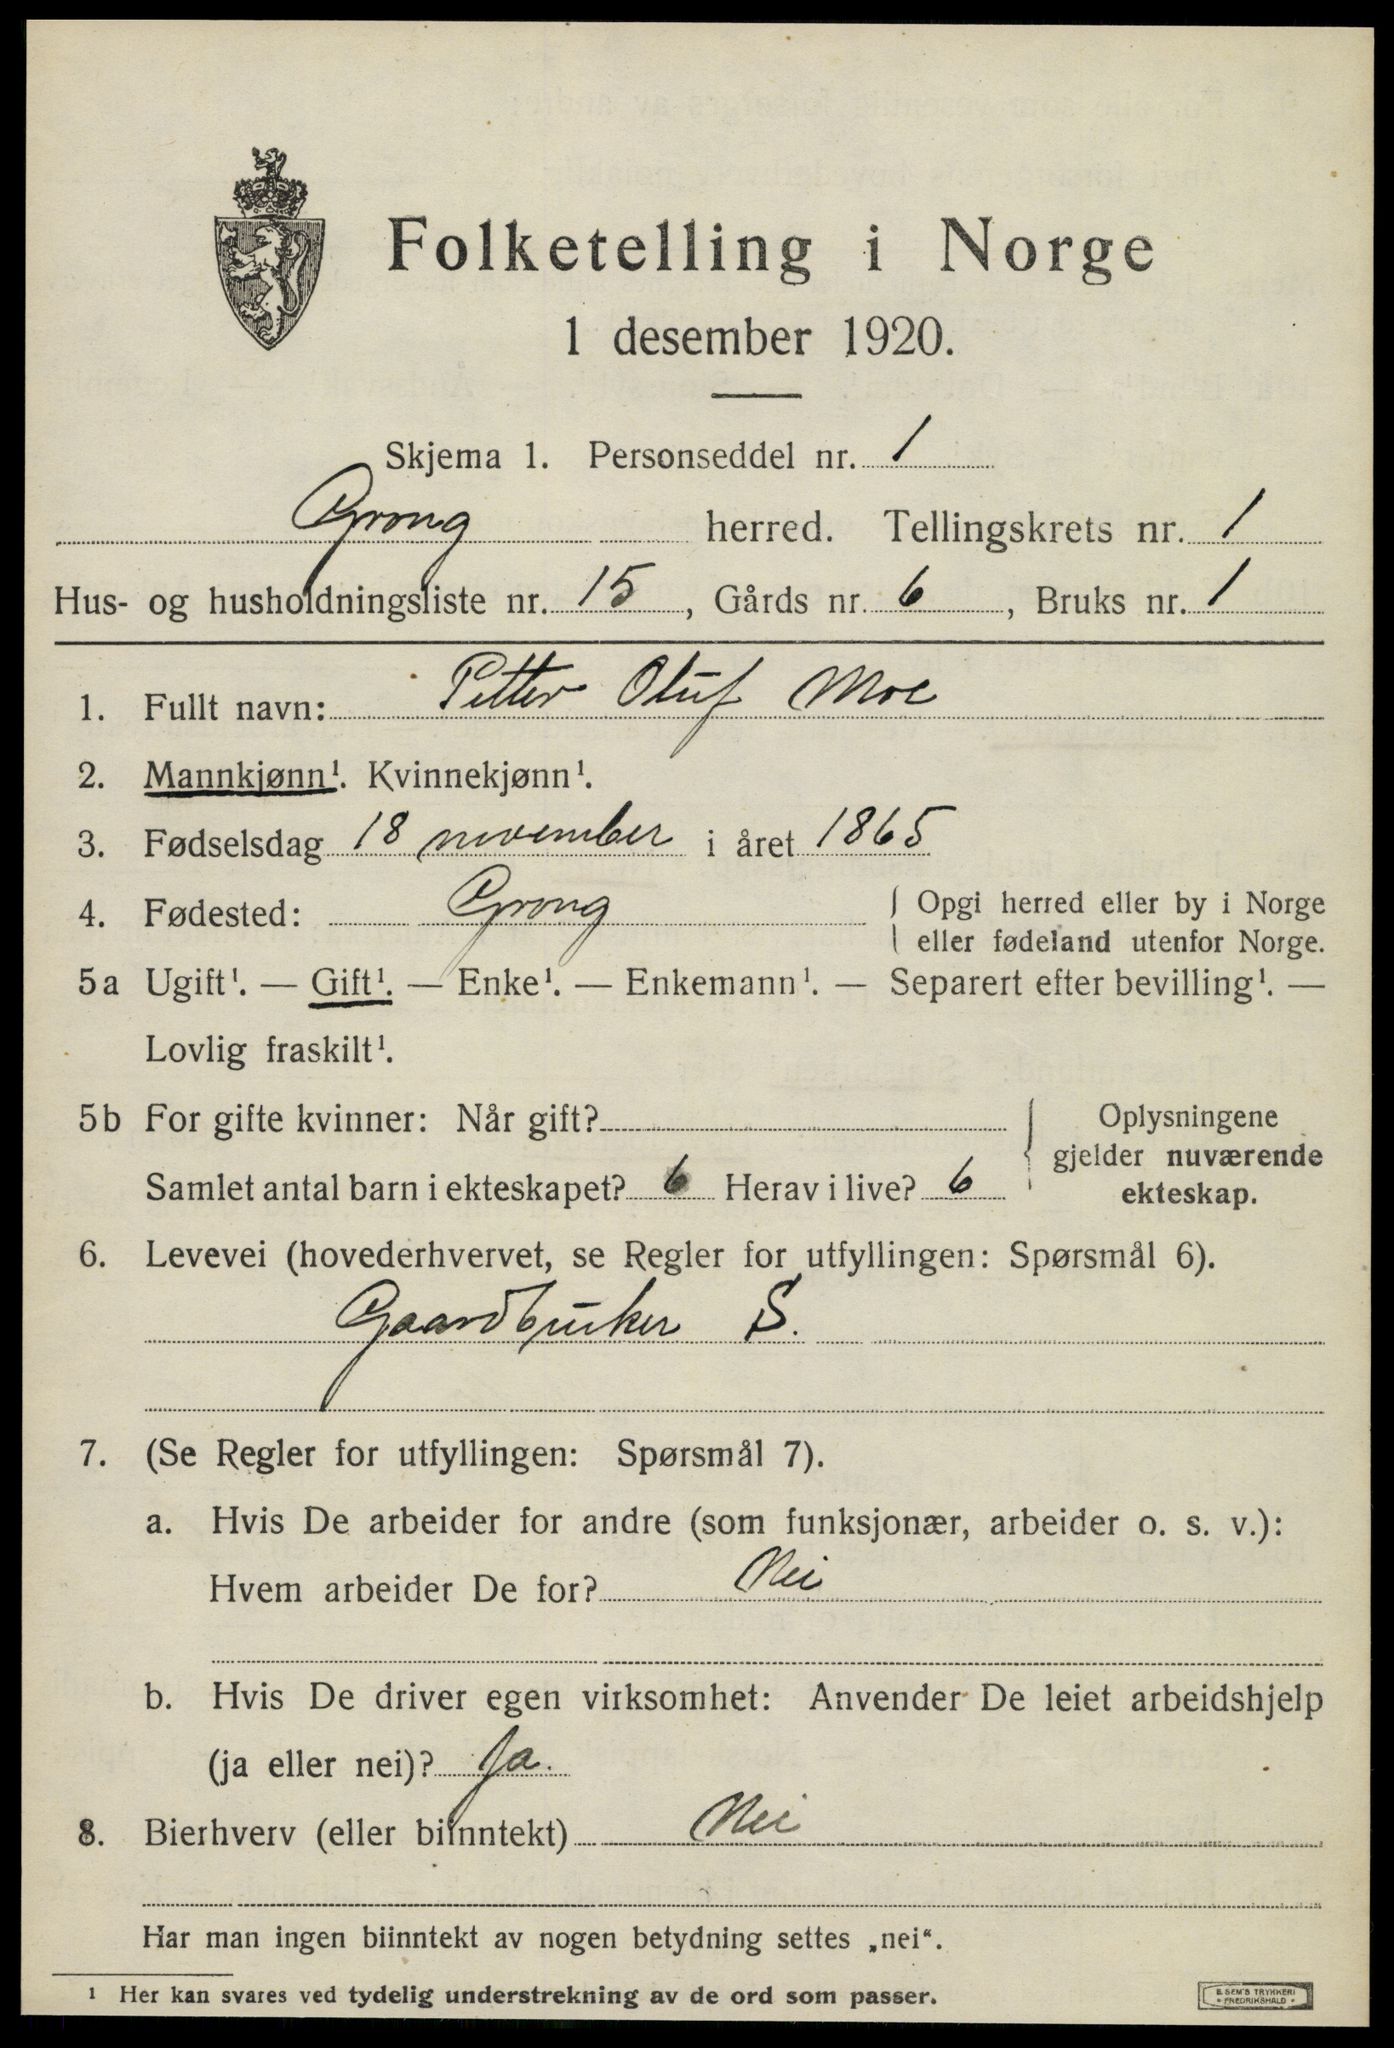 Folketelling i Norge
1 desember 1920.
Skjema 1. Personseddel nr. 1
Grong herred. Tellingskrets nr. 1
Hus- og husholdningsliste nr. 15, Gårds nr. 6, Bruks nr. 1
1. Fullt navn: Petter Oluf Moe
2. Mannkjønn¹. Kvinnekjønn¹.
3. Fødselsdag 18 november i året 1865
4. Fødested: Grong { Opgi herred eller by i Norge
eller fødeland utenfor Norge.
5a Ugift¹. — Gift¹. — Enke¹. — Enkemann¹. — Separert efter bevilling¹. —
Lovlig fraskilt¹.
5b For gifte kvinner: Når gift? { Oplysningene
gjelder nuværende
Samlet antal barn i ekteskapet? 6 Herav i live? 6 ekteskap.
6. Levevei (hovederhvervet, se Regler for utfyllingen: Spørsmål 6).
Gaardbruker S.
7. (Se Regler for utfyllingen: Spørsmål 7).
a. Hvis De arbeider for andre (som funksjonær, arbeider o. s. v.):
Hvem arbeider De for? Nei
b. Hvis De driver egen virksomhet: Anvender De leiet arbeidshjelp
(ja eller nei)? Ja.
8. Bierhverv (eller biinntekt) Nei
Har man ingen biinntekt av nogen betydning settes „nei“.
¹ Her kan svares ved tydelig understrekning av de ord som passer.
E. SEM'S TRYKKERI
FREDRIKSHALD